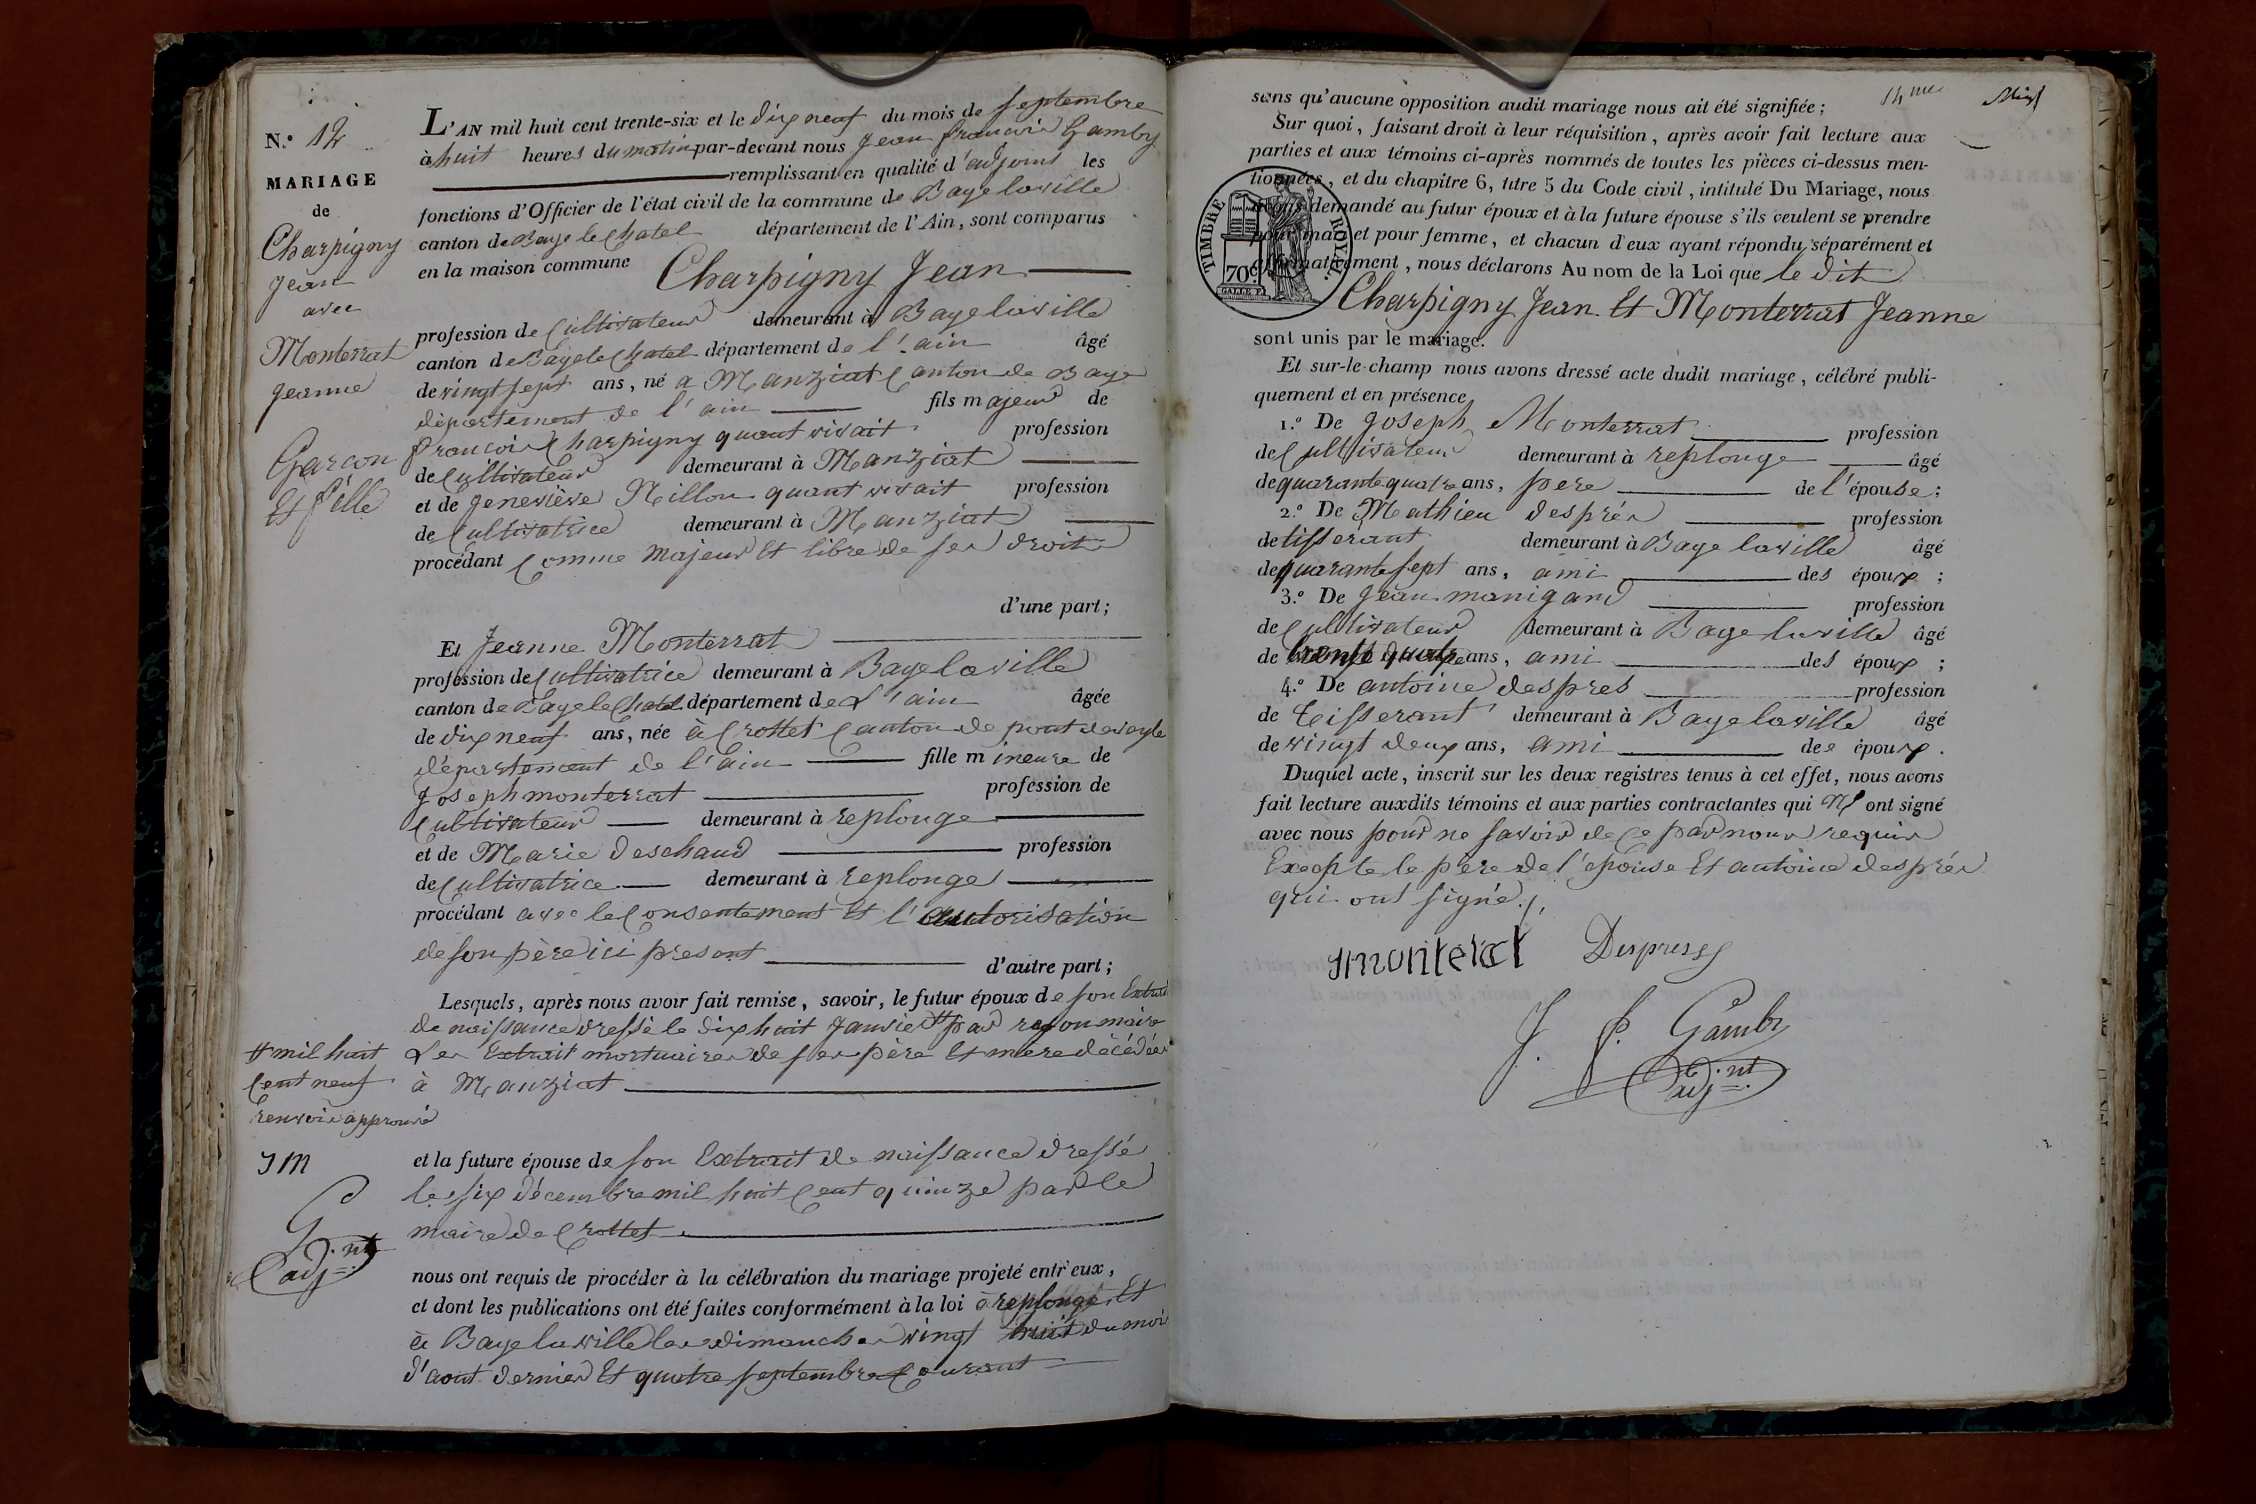 N.° 12
MARIAGE
de
Charpigny
Jean
avec
Monterrat
jeanne
Garcon
Et fille
L'AN mil huit cent trente-six et le dix neuf du mois de septembre
à huit heures du matin par-devant nous Jean francois Gamby
remplissant en qualité d'adjoint les
fonctions d'Officier de l'état civil de la commune de Bage laville
canton de Bage le Chatel département de l'Ain, sont comparus
en la maison commune Charpigny Jean
profession de Cultivateur demeurant à Bage laville
canton de Bage le Chatel département de l'ain âgé
de vingt sept ans, né a Manziat Canton de Bage
département de l'ain fils majeur de
francois Charpigny quant vivait profession
de Cultivateur demeurant à Manziat
et de genevieve Nillon quant vivait profession
de Cultivatrice demeurant à Manziat
procédant Comme majeur Et libre de ses droits
d'une part;
Et Jeanne Monterrat
profession de Cultivatrice demeurant à Bage laville
canton de Bage le Chatel département de L'ain âgée
de dix neuf ans, née à Crottet Canton de pont de vayle
département de l'ain fille mineure de
Joseph monterrat profession de
Cultivateur demeurant à replonge
et de Marie deschaud profession
de Cultivatrice demeurant à replonge
procédant avec le Consentement Et l'autorisation
de son père ici present d'autre part;
Lesquels, après nous avoir fait remise, savoir, le futur époux de son Extrait
de naissance dressé le dix huit Janvier # par maire
Les Extrait mortuaires de ses père Et mere décédées
à Manziat
# mil huit
Cent neuf
renvoie approuvé
J M
G
adj.nt
et la future épouse de son Extrait de naissance dressé
le six décembre mil huit Cent quinze par le
maire de Crottet
nous ont requis de procéder à la célébration du mariage projeté entr'eux,
et dont les publications ont été faites conformément à la loi à replonge Et
à Bage laville les dimanches vingt huit du mois
d'aout dernier Et quatre septembre Courant
14me
sans qu'aucune opposition audit mariage nous ait été signifiée;
Sur quoi, faisant droit à leur réquisition, après avoir fait lecture aux
parties et aux témoins ci-après nommés de toutes les pièces ci-dessus men-
tionnées, et du chapitre 6, titre 5 du Code civil, intitulé Du Mariage, nous
avons demandé au futur époux et à la future épouse s'ils veulent se prendre
pour mari et pour femme, et chacun d'eux ayant répondu séparément et
affirmativement, nous déclarons Au nom de la Loi que le dit
TIMBRE ROYAL.
70c
GALLE F.
Charpigny Jean Et Monterrat Jeanne
sont unis par le mariage.
Et sur-le-champ nous avons dressé acte dudit mariage, célébré publi-
quement et en présence
1.° De Joseph Monterrat profession
de Cultivateur demeurant à replonge âgé
de quarante quatre ans, pere de l'épouse;
2.° De Mathieu després profession
de tisserant demeurant à Bage laville âgé
de quarante sept ans, ami des époux;
3.° De Jean manigand profession
de Cultivateur demeurant à Bage laville âgé
de trente quatre ans, ami des époux;
4.° De antoine despres profession
de tisserant demeurant à Bage laville âgé
de vingt deux ans, ami des époux.
Duquel acte, inscrit sur les deux registres tenus à cet effet, nous avons
fait lecture auxdits témoins et aux parties contractantes qui N' ont signé
avec nous pour ne savoir de Ce par nous requis
Exepte le père de l'épouse Et antoine després
qui ont signé
Jmonterat Despress
J. f. Gamby
adj.nt